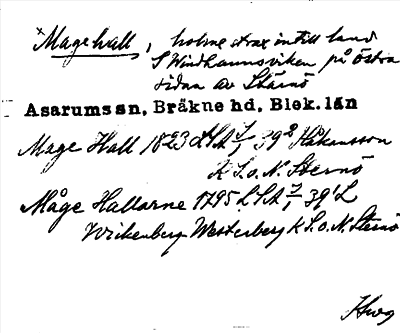 ×Magehall, holme strax intill land
S Windhamnsviken på östra
sidan av Stärnö
Asarums sn, Bräkne hd, Blek. län
Mage Hall 1823 LSA 7/1 39² Håkansson
K S. o. N. Sternö
Måge Hallarne 1795 LSA 7/1 39¹ L
Wirkenberg Westerberg K S. o. N. Sternö